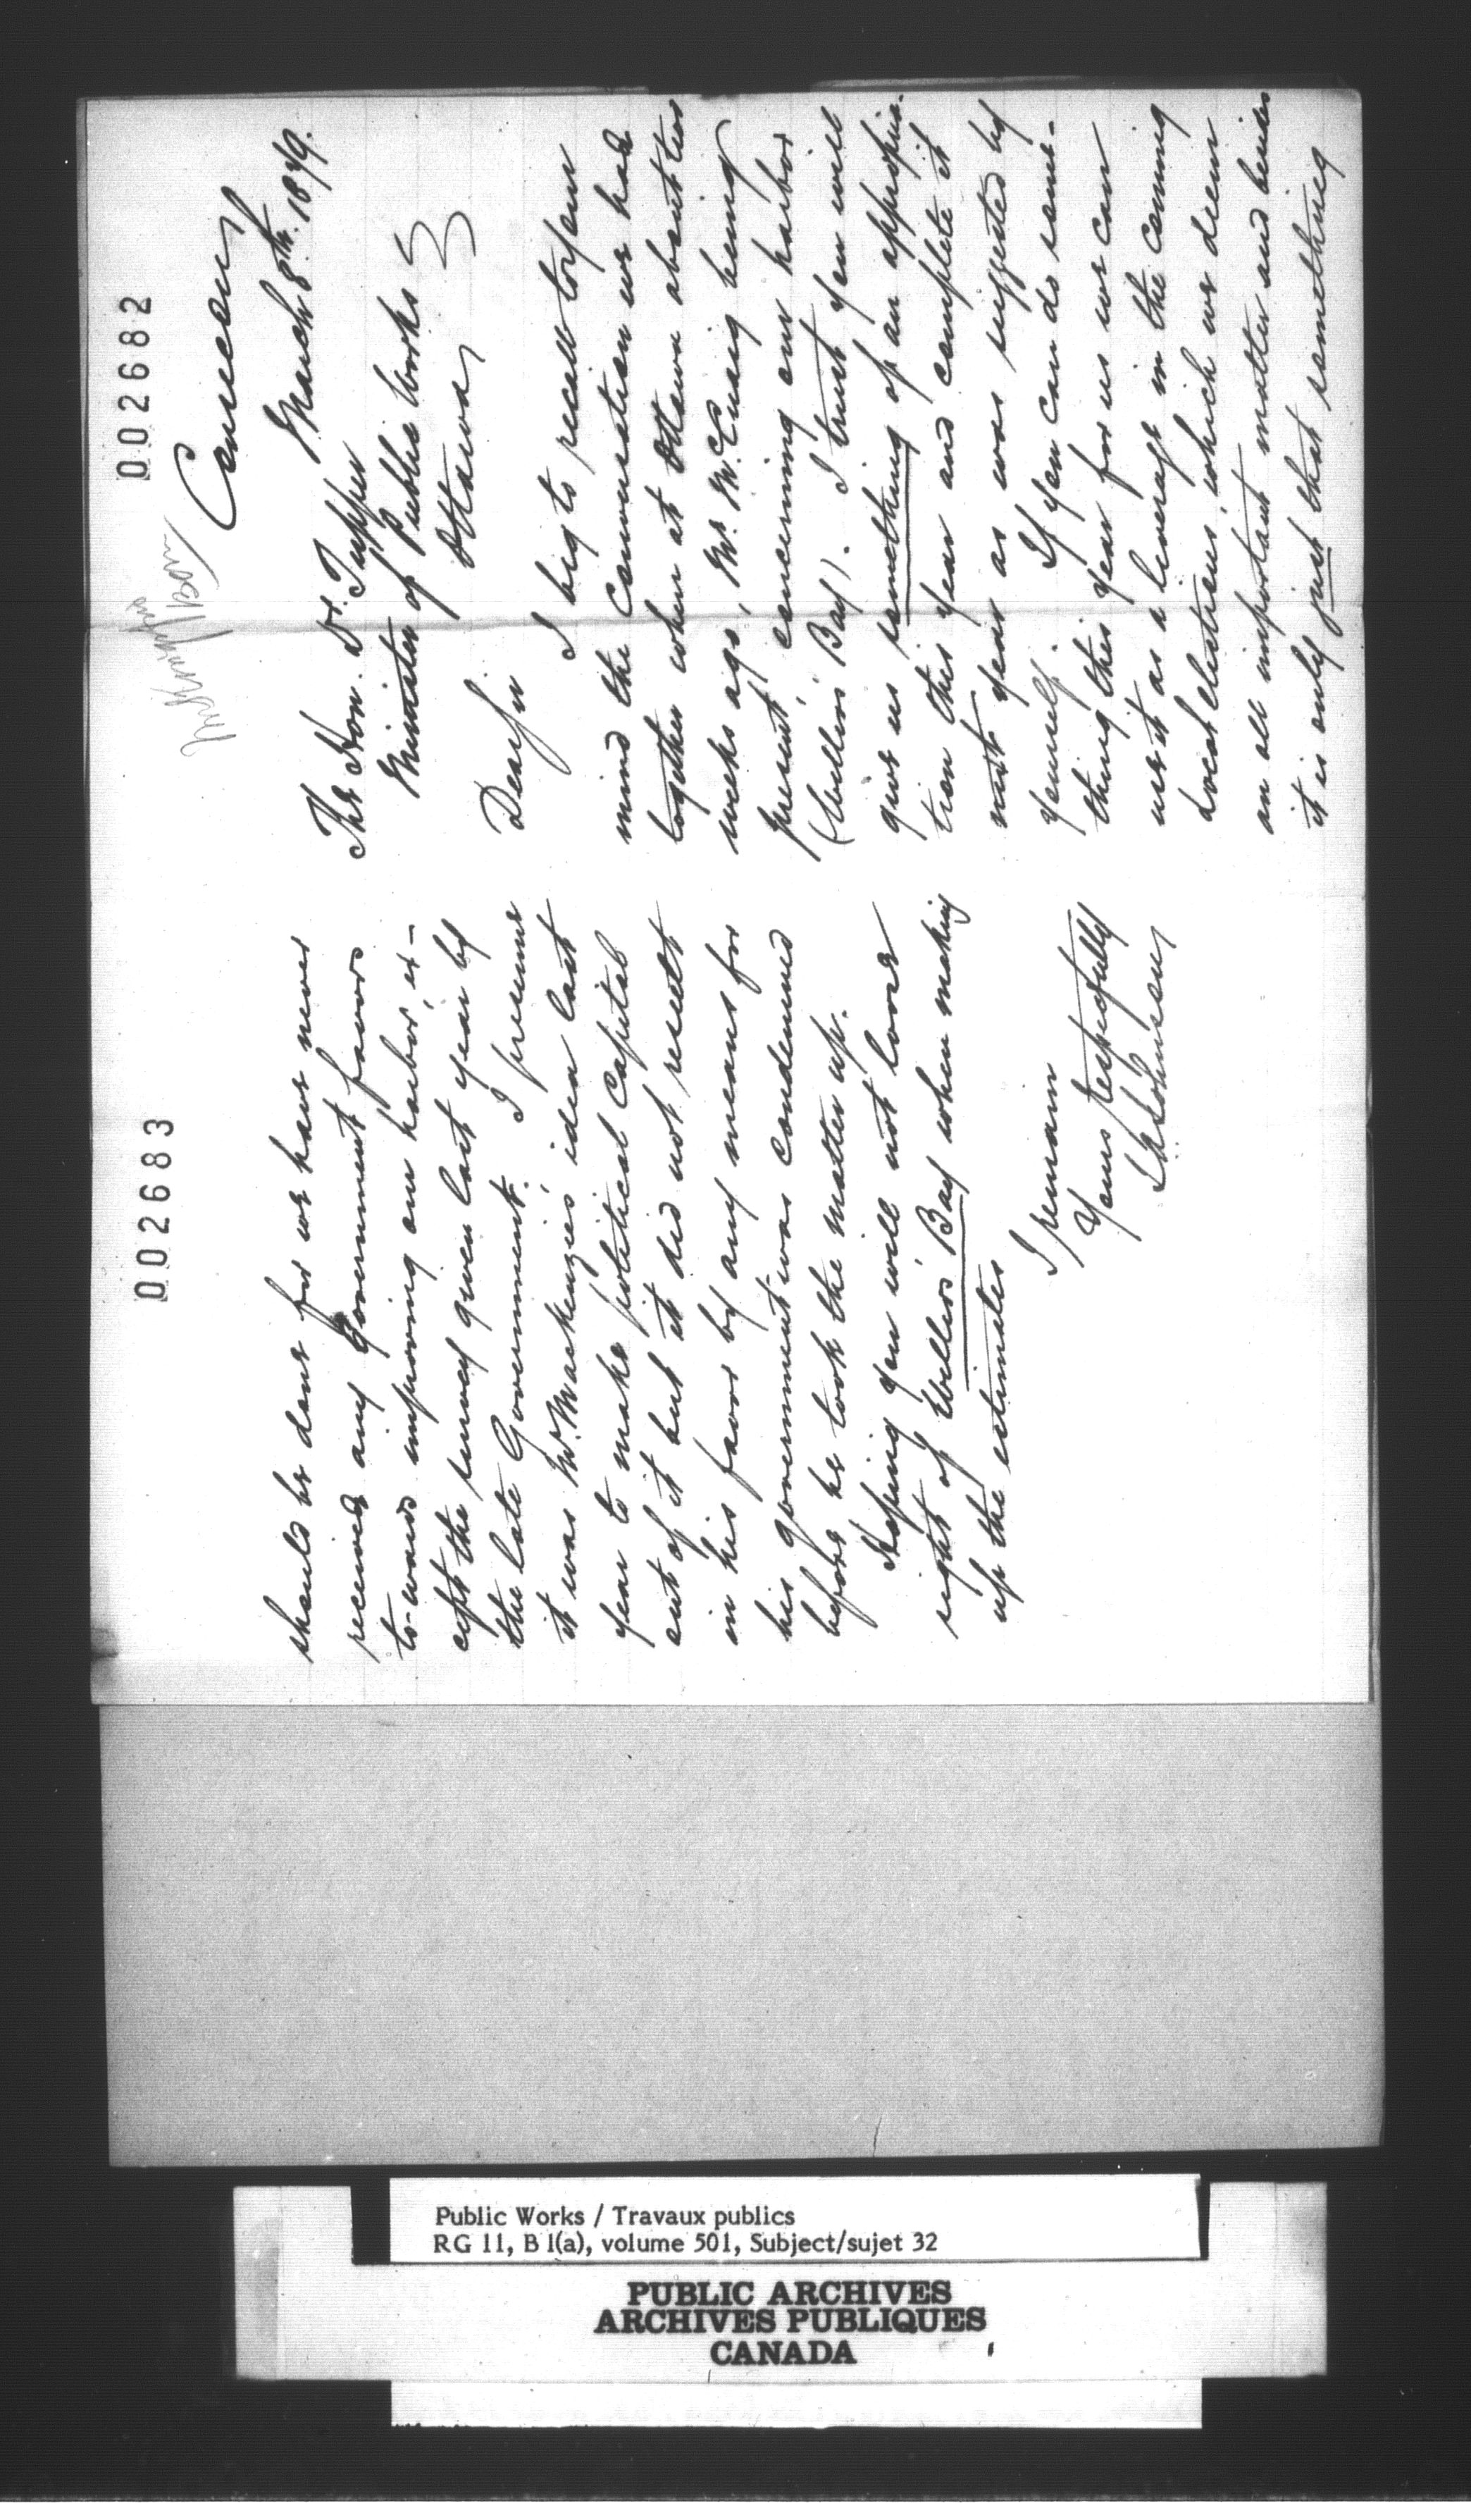 002682
Consecon
March 8th. 1879.
The Hon. Dr. Tupper
Minister of Public Works
Ottawa
Dear Sir
I beg to recall to your
mind the conversation we had
together when at Ottawa about two
weeks ago, Mr. McCuaig being
present, concerning our harbor
(Wellers Bay). I trust you will
give us something of an appropria-
tion this year and complete it
next year as was suggested by
yourself. If you can do some-
thing this year for us we can
use it as a leverage in the coming
Local Elections, which we deem
an all important matter and besides
it is only just that something
002683
should be done for we have never
received any Government favors
to-wards improving our harbor, ex-
cept the survey given last year by
the late Government. I presume
it was Mr. Mackenzies' idea last
year to make political capital
out of it but it did not result
in his favor by any means for
his government was condemned
before he took the matter up.
Hoping you will not loose
sight of Wellers Bay when making
up the estimates
I remain
Yours respectfully
Johnson
Public Works / Travaux publics
RG 11, B 1(a), volume 501, Subject/sujet 32
PUBLIC ARCHIVES
ARCHIVES PUBLIQUES
CANADA